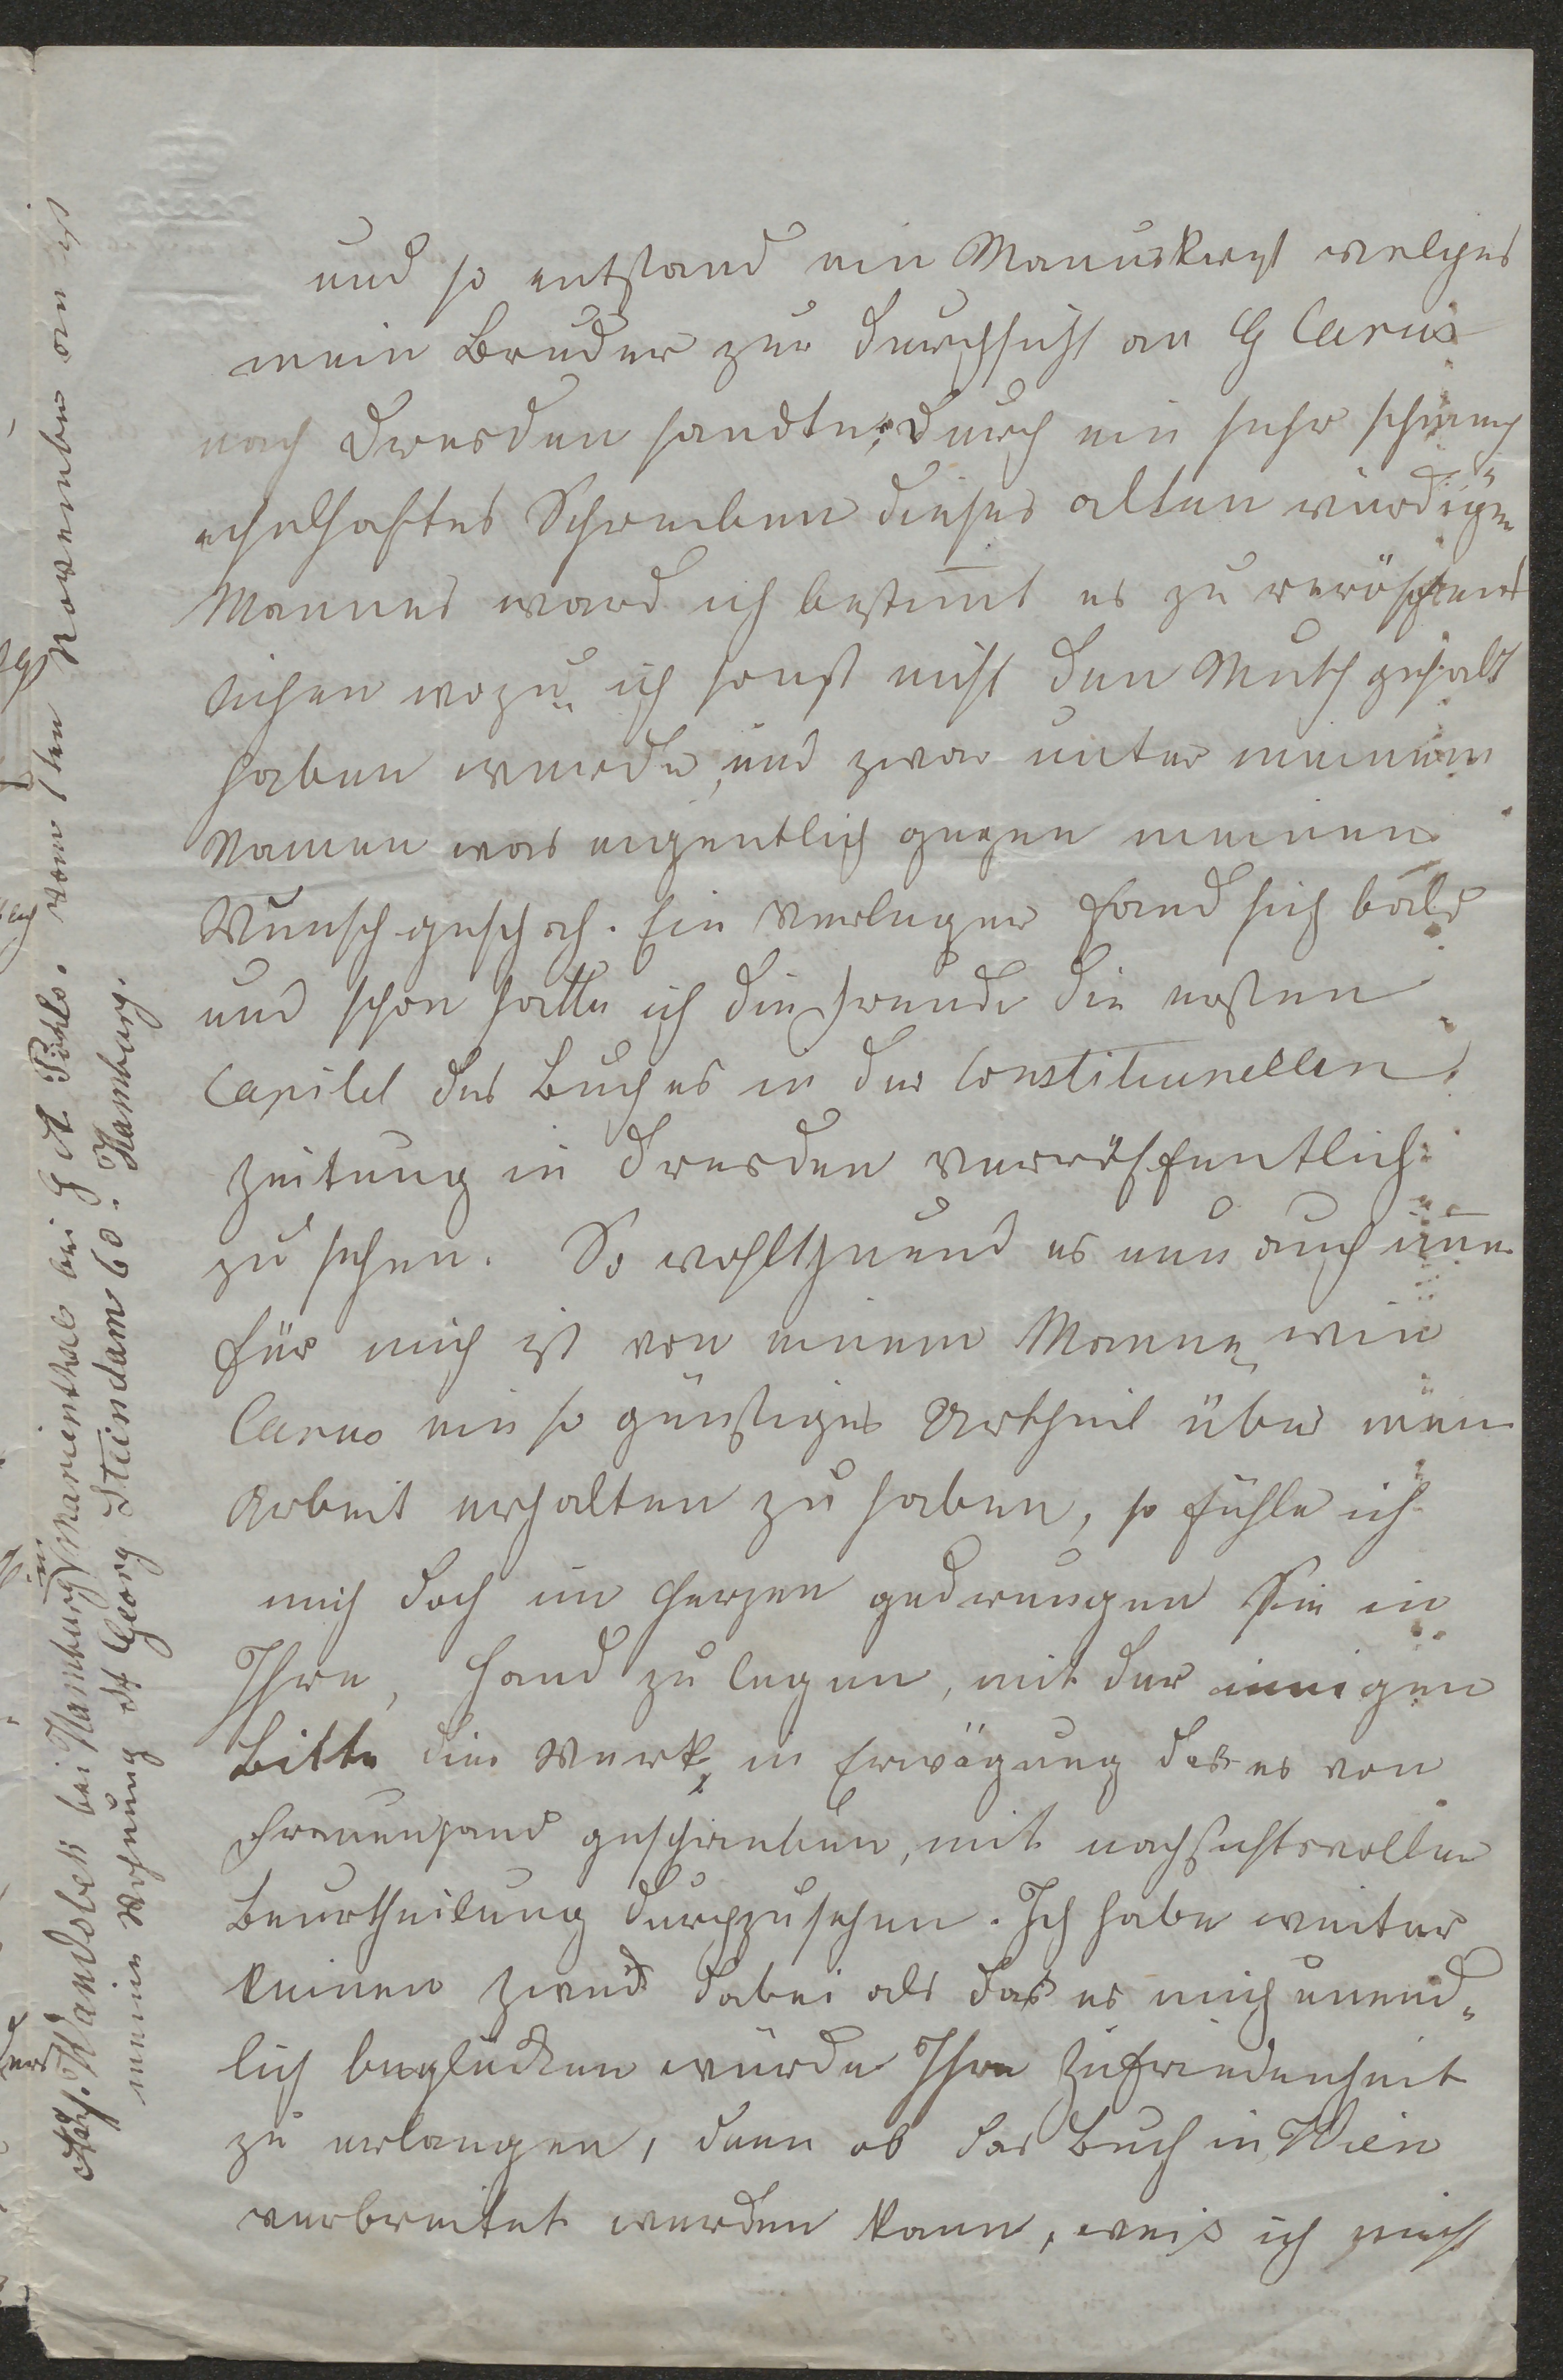 und so entstand ein Manuskript welches
mein Bruder zur Durchsicht an G Carus
nach Dresden sandte; durch ein sehr schmei
chelhaftes Schreiben dieses alten würdigen
Mannes ward ich bestimt es zu veröffent
lichen wozu ich sonst nicht den Muth gehabt
haben wuerde, und zwar unter meinem
Namen was eigentlich gegen meinen
Wunsch geschah. Ein Verleger fand sich bald
und schon hatte ich die Freude die ersten
Capitel des Buches in der Constitunellen
Zeitung in Dresden veröffentlich
zu sehen. So wohlthuend es nun auch
für mich ist von einem Manne, wie
Carus ein so günstiges Urtheil über mein
Arbeit erhalten zu haben, so fühle ich
mich doch im Herzen gedrungen Sie in
Ihre, Hand zu legen, mit der innigen
Bitte die Werk, in Erwägung daß es von
Frauenhand geschrieben, mit nachsichtsvoller
Beurtheilung durchzusehen. Ich habe weiter
keinen Zweck dabei als daß es mich unend-
lich beglücken würde Ihre Zufriedenheit
zu erlangen, denn ob das Buch in Wien
verbreitet werden kann, weis ich nicht
Wandsbeck bei Hamburg im Marienthal bei H A. Pöhls. vom 1ten November an ist
meine Wohnung St Georg Steindam 60. Hamburg.